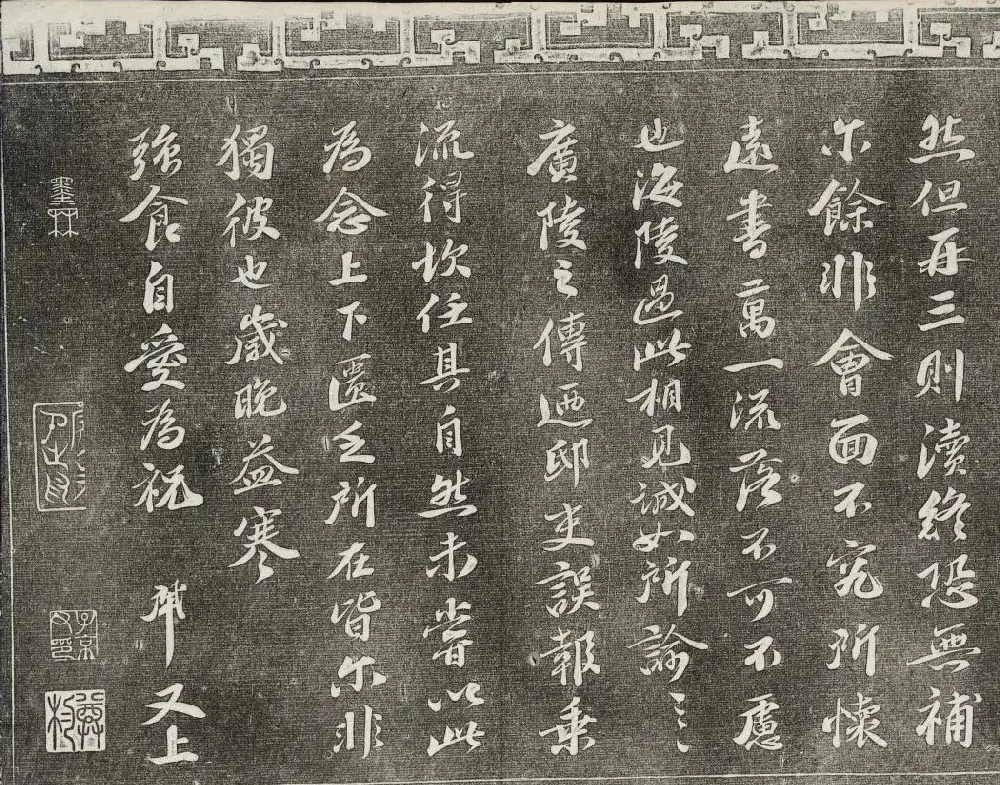 然但再三則瀆終恐無補
尓餘非會面不究所懷
遠書萬一流落不可不慮
也海陵過此相見誠如所諭〻
廣陵之傳迺邸吏誤報乘
流得坎任其自然未嘗以此
為念上下匱乏所在皆尓非
獨彼也歲晚益寒
強食自愛為祝 又上
墨林
子京父印